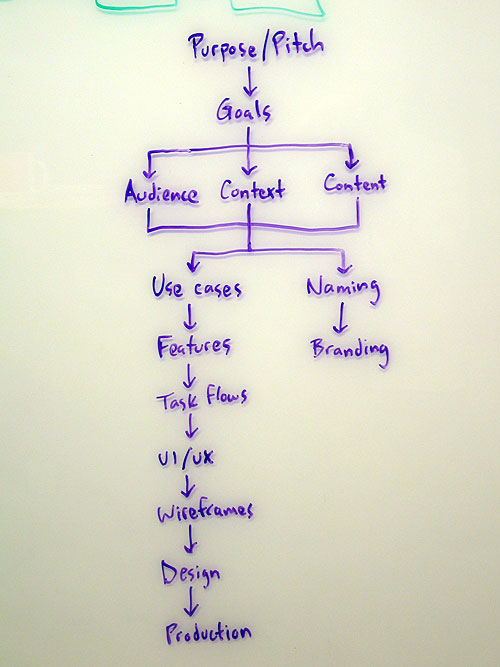 Purpose/Pitch
Goals
Audience Context Content
Use cases Naming
Features Branding
Task Flows
UI/UX
Wireframes
Design
Production